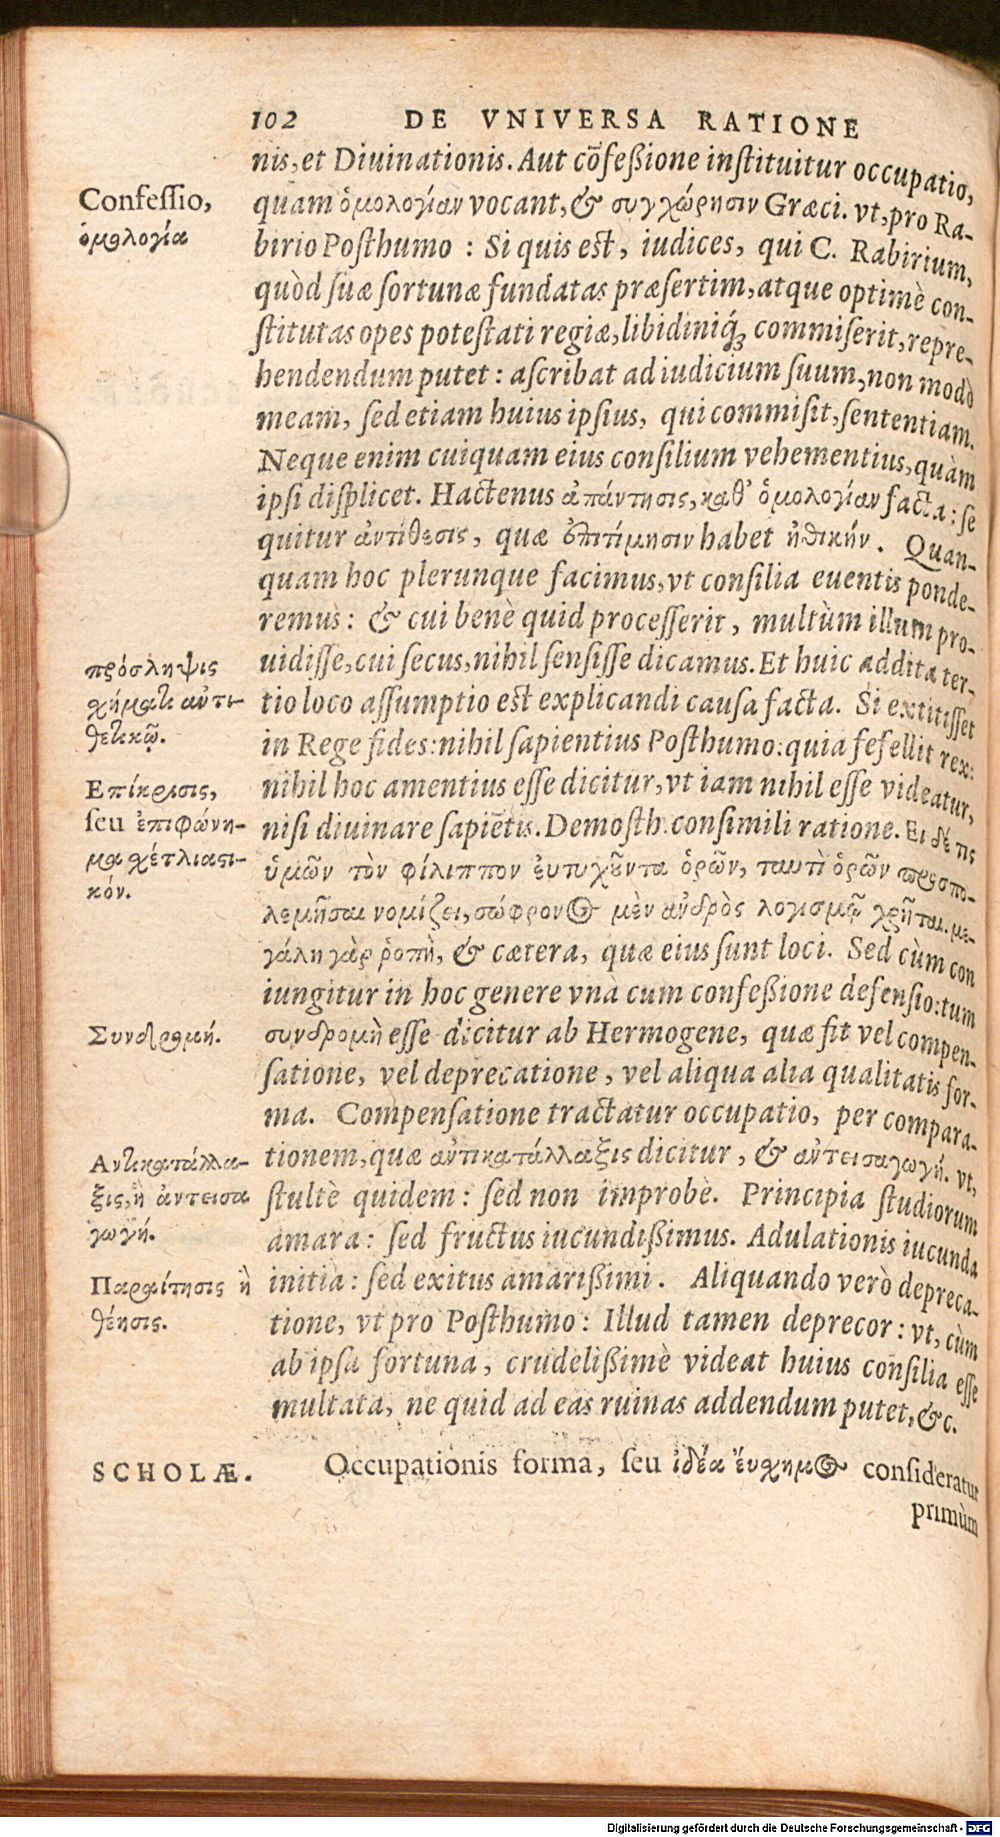 102 DE VNIVERSA RATIONE
nis, et Diuinationis. Aut cõfeßione instituitur occupatio,
Confessio,
ὁμολογία
quam ὁμολογίαν vocant, & συγχώρησιν Græci. vt, pro Ra-
birio Posthumo : Si quis est, iudices, qui C. Rabirium,
quòd suæ fortunæ fundatas præsertim, atque optimè con-
stitutas opes potestati regiæ, libidiniq́; commiserit, repre-
hendendum putet : ascribat ad iudicium suum, non modò
meam, sed etiam huius ipsius, qui commisit, sententiam.
Neque enim cuiquam eius consilium vehementius, quàm
ipsi displicet. Hactenus ἀπάντησις, καθ' ὁμολογίαν facta : se
quitur ἀντίθεσις, quæ ἐπιτίμησιν habet ἠθικήν. Quan-
quam hoc plerunque facimus, vt consilia euentis ponde-
remus : & cui benè quid processerit, multùm illum pro-
uidisse, cui secus, nihil sensisse dicamus. Et huic addita ter-
πρόσληψις
χήματι ἀντι-
θετικῷ.
tio loco assumptio est explicandi causa facta. Si extitisset
in Rege fides : nihil sapientius Posthumo : quia fefellit rex :
nihil hoc amentius esse dicitur, vt iam nihil esse videatur,
Επίκρισις,
seu ἐπιφώνη-
μα χέτλιασι-
κόν.
nisi diuinare sapiẽtis. Demosth. consimili ratione. Ει δέ τις
ὑμῶν τὸν φίλιππον ἐυτυχοῦντα ὁρῶν, ταυτὶ ὁρῶν προσπο-
λεμῆσαι νομίζει, σώφρονος μὲν ἀνδρὸς λογισμῷ χρῆται. με-
γάλη γὰρ ῥοπὴ, & cætera, quæ eius sunt loci. Sed cùm con
iungitur in hoc genere vnà cum confeßione defensio : tum
Συνδρομή.
συνδρομὴ esse dicitur ab Hermogene, quæ fit vel compen-
satione, vel deprecatione, vel aliqua alia qualitatis for-
ma. Compensatione tractatur occupatio, per compara-
Αντικατάλλα-
ξις, ἢ ἀντεισα
γωγή.
tionem, quæ ἀντικατάλλαξις dicitur, & ἀντεισαγωγή. vt,
stultè quidem : sed non improbè. Principia studiorum
amara : sed fructus iucundißimus. Adulationis iucunda
Παραίτησις ἢ
θέησις.
initia : sed exitus amarißimi. Aliquando verò depreca-
tione, vt pro Posthumo : Illud tamen deprecor : vt, cùm
ab ipsa fortuna, crudelißimè videat huius consilia esse
multata, ne quid ad eas ruinas addendum putet, &c.
SCHOLÆ.
Occupationis forma, seu ἰδέα ἔυσχημος consideratur
primùm
Digitalisierung gefördert durch die Deutsche Forschungsgemeinschaft - DFG